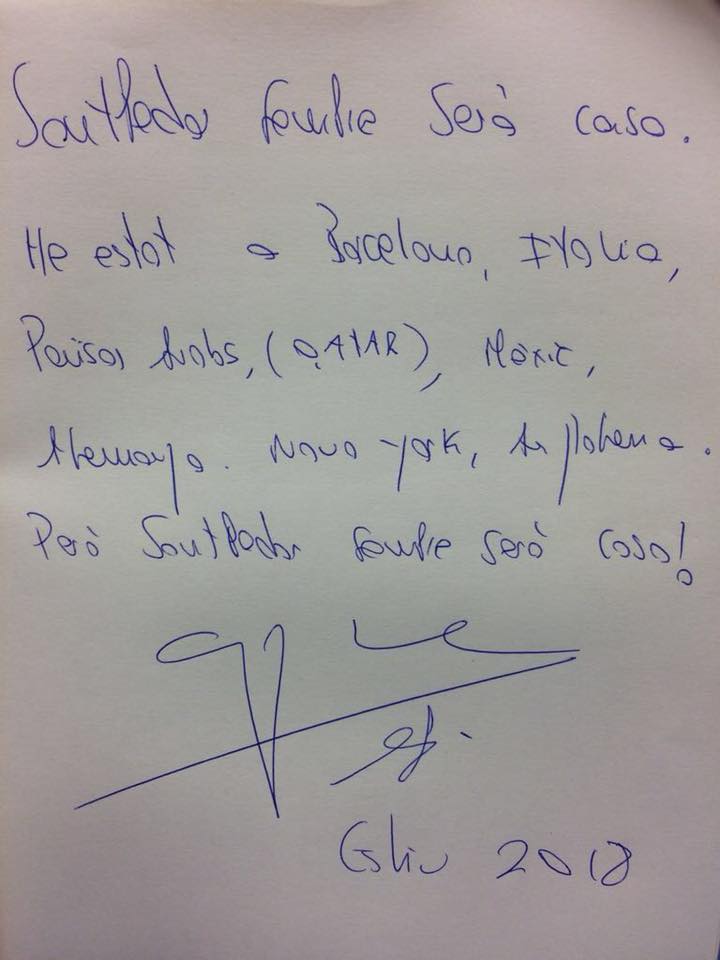 Santpedor sempre serà casa.
He estat a Barcelona, Itàlia,
Països Àrabs, (QATAR), Mèxic,
Alemanya. Nova York, Anglaterra.
Però Santpedor sempre serà casa!
Estiu 2018